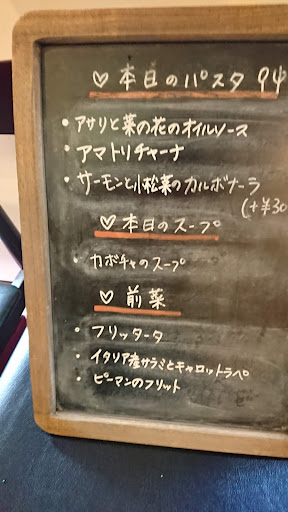 ♡ 本日のパスタ 94
・アサリと菜の花のオイルソース
・アマトリチャーナ
・サーモンと小松菜のカルボナーラ
(+¥30
♡ 本日のスープ
・カボチャのスープ
♡ 前菜
・フリッタータ
・イタリア産サラミとキャロットラペ
・ピーマンのフリット